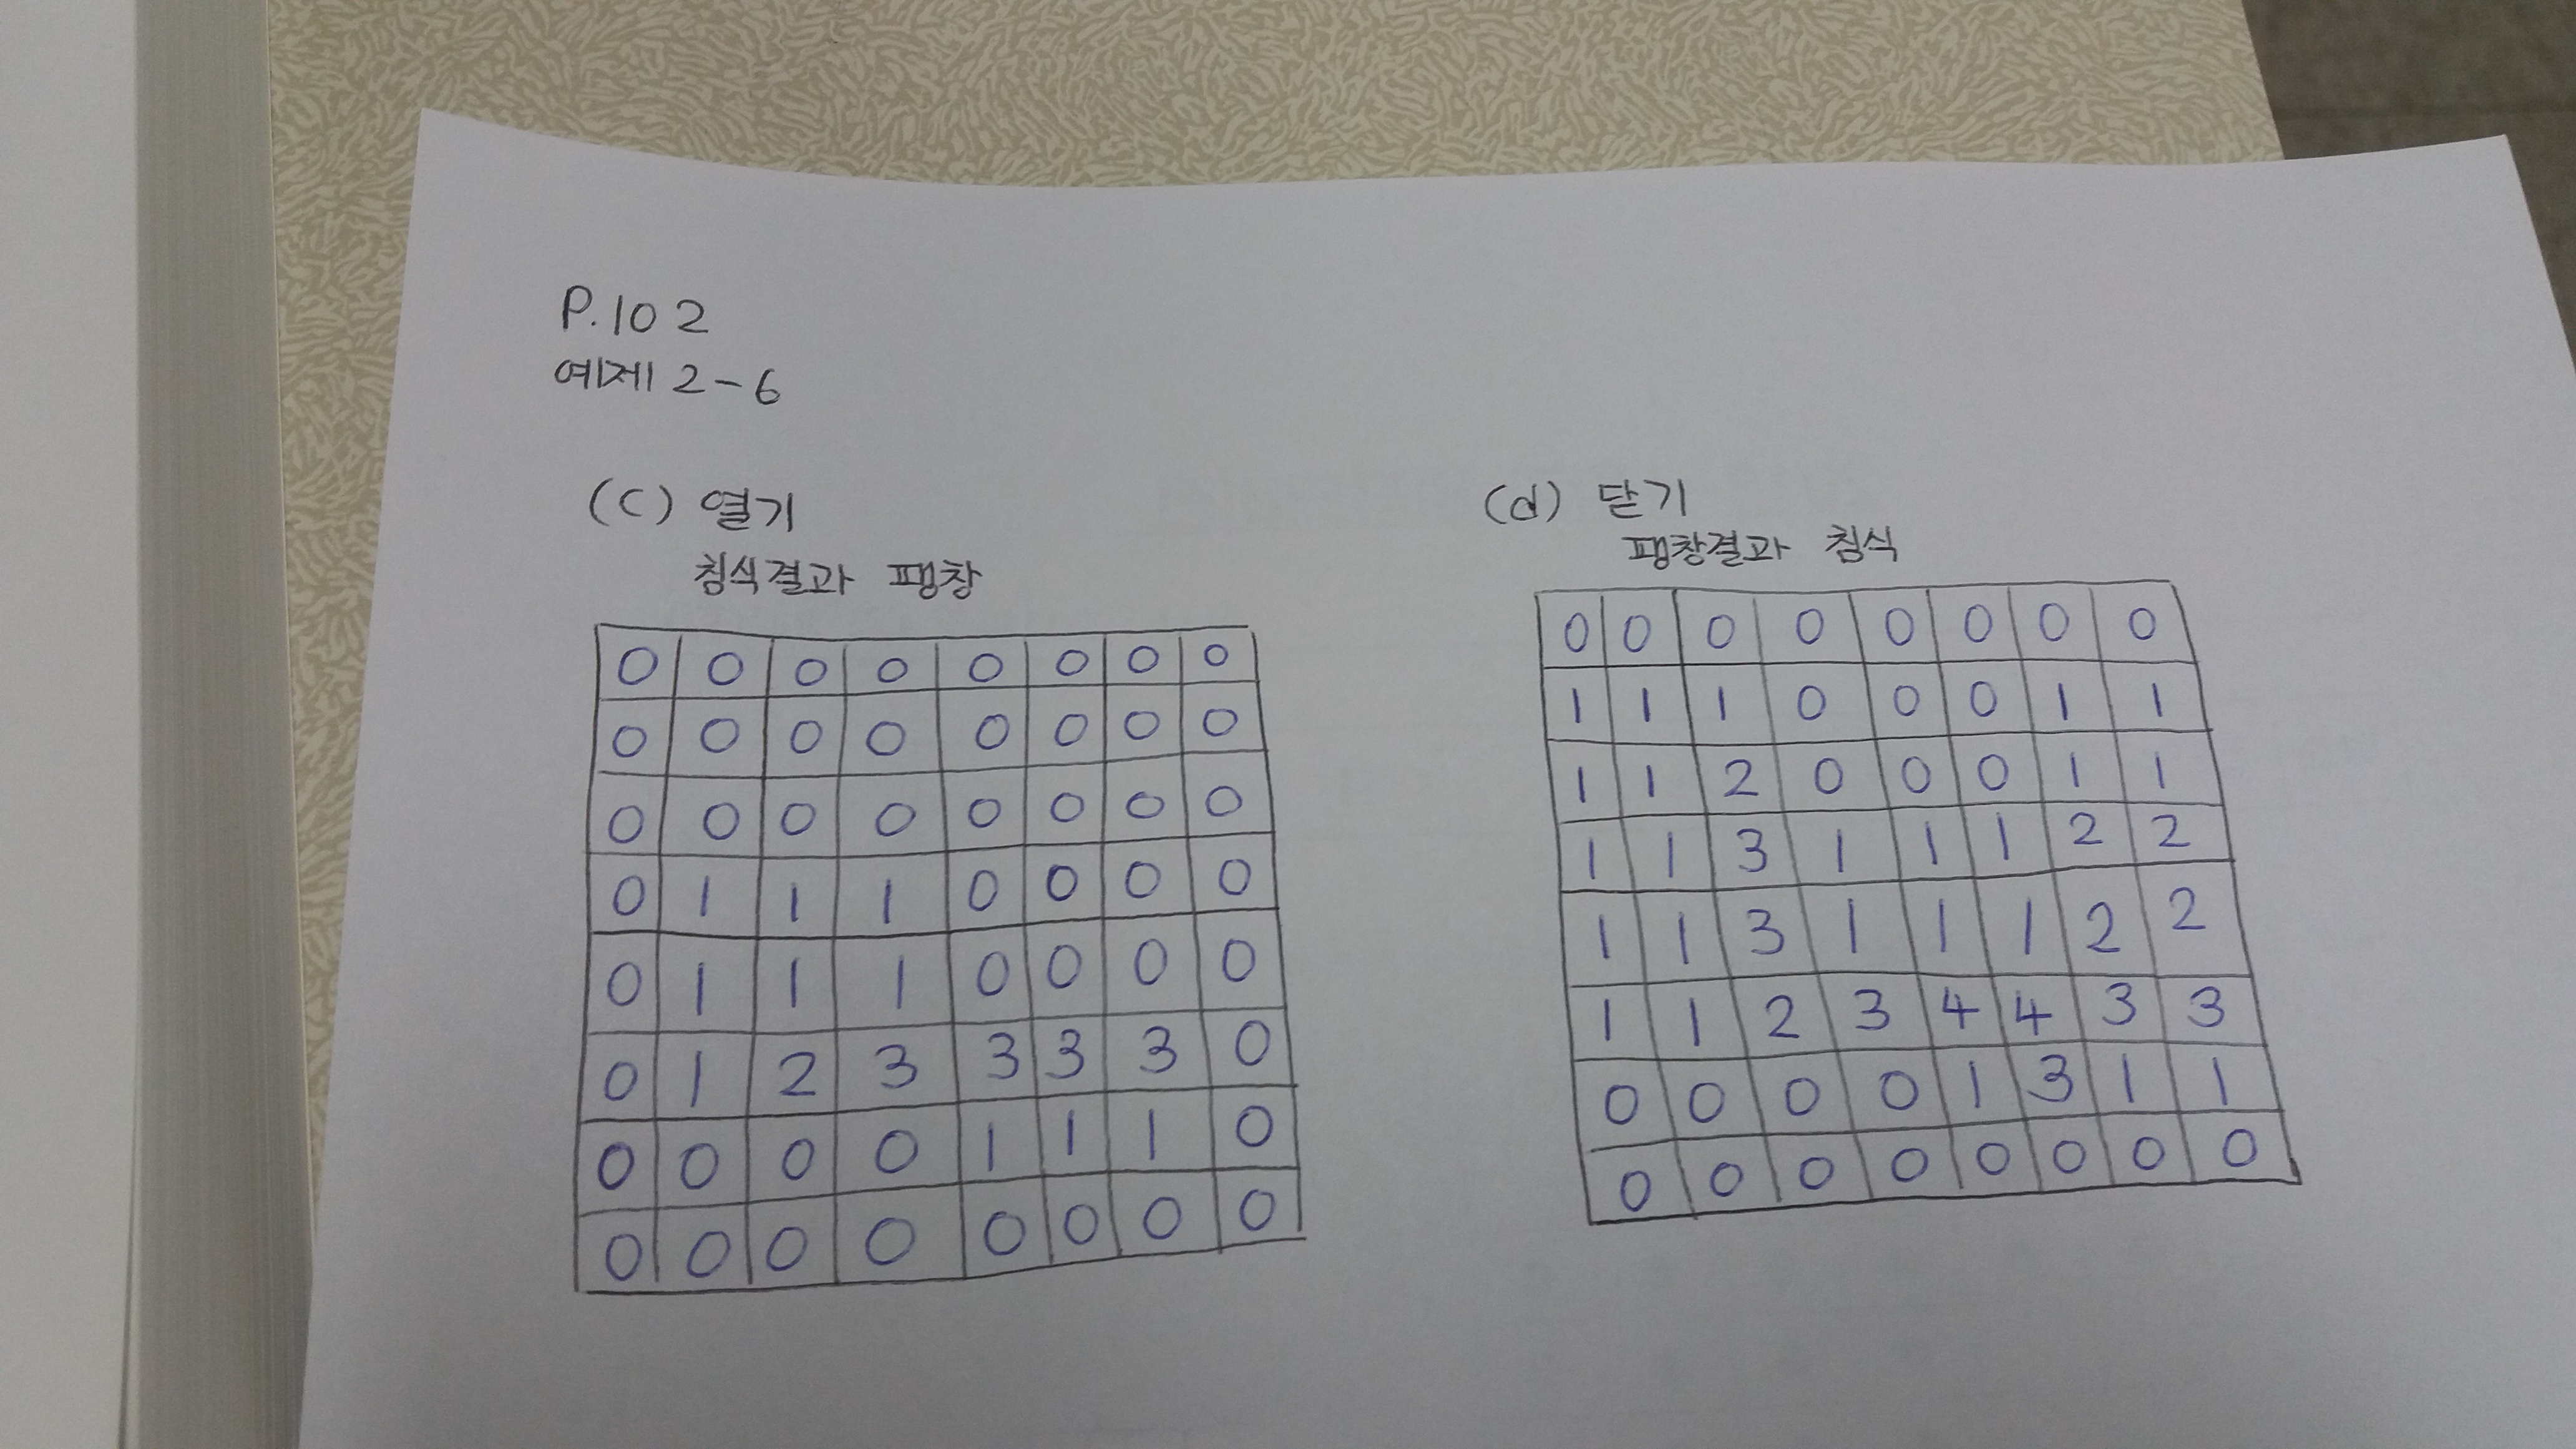 P.102
예제 2-6
(c) 열기
침식결과 팽창
0 0 0 0 0 0 0 0
0 0 0 0 0 0 0 0
0 0 0 0 0 0 0 0
0 1 1 1 0 0 0 0
0 1 1 1 0 0 0 0
0 1 2 3 3 3 3 0
0 0 0 0 1 1 1 0
0 0 0 0 0 0 0 0
(d) 닫기
팽창결과 침식
0 0 0 0 0 0 0 0
1 1 1 0 0 0 1 1
1 1 2 0 0 0 1 1
1 1 3 1 1 1 2 2
1 1 3 1 1 1 2 2
1 1 2 3 4 4 3 3
0 0 0 0 1 3 1 1
0 0 0 0 0 0 0 0